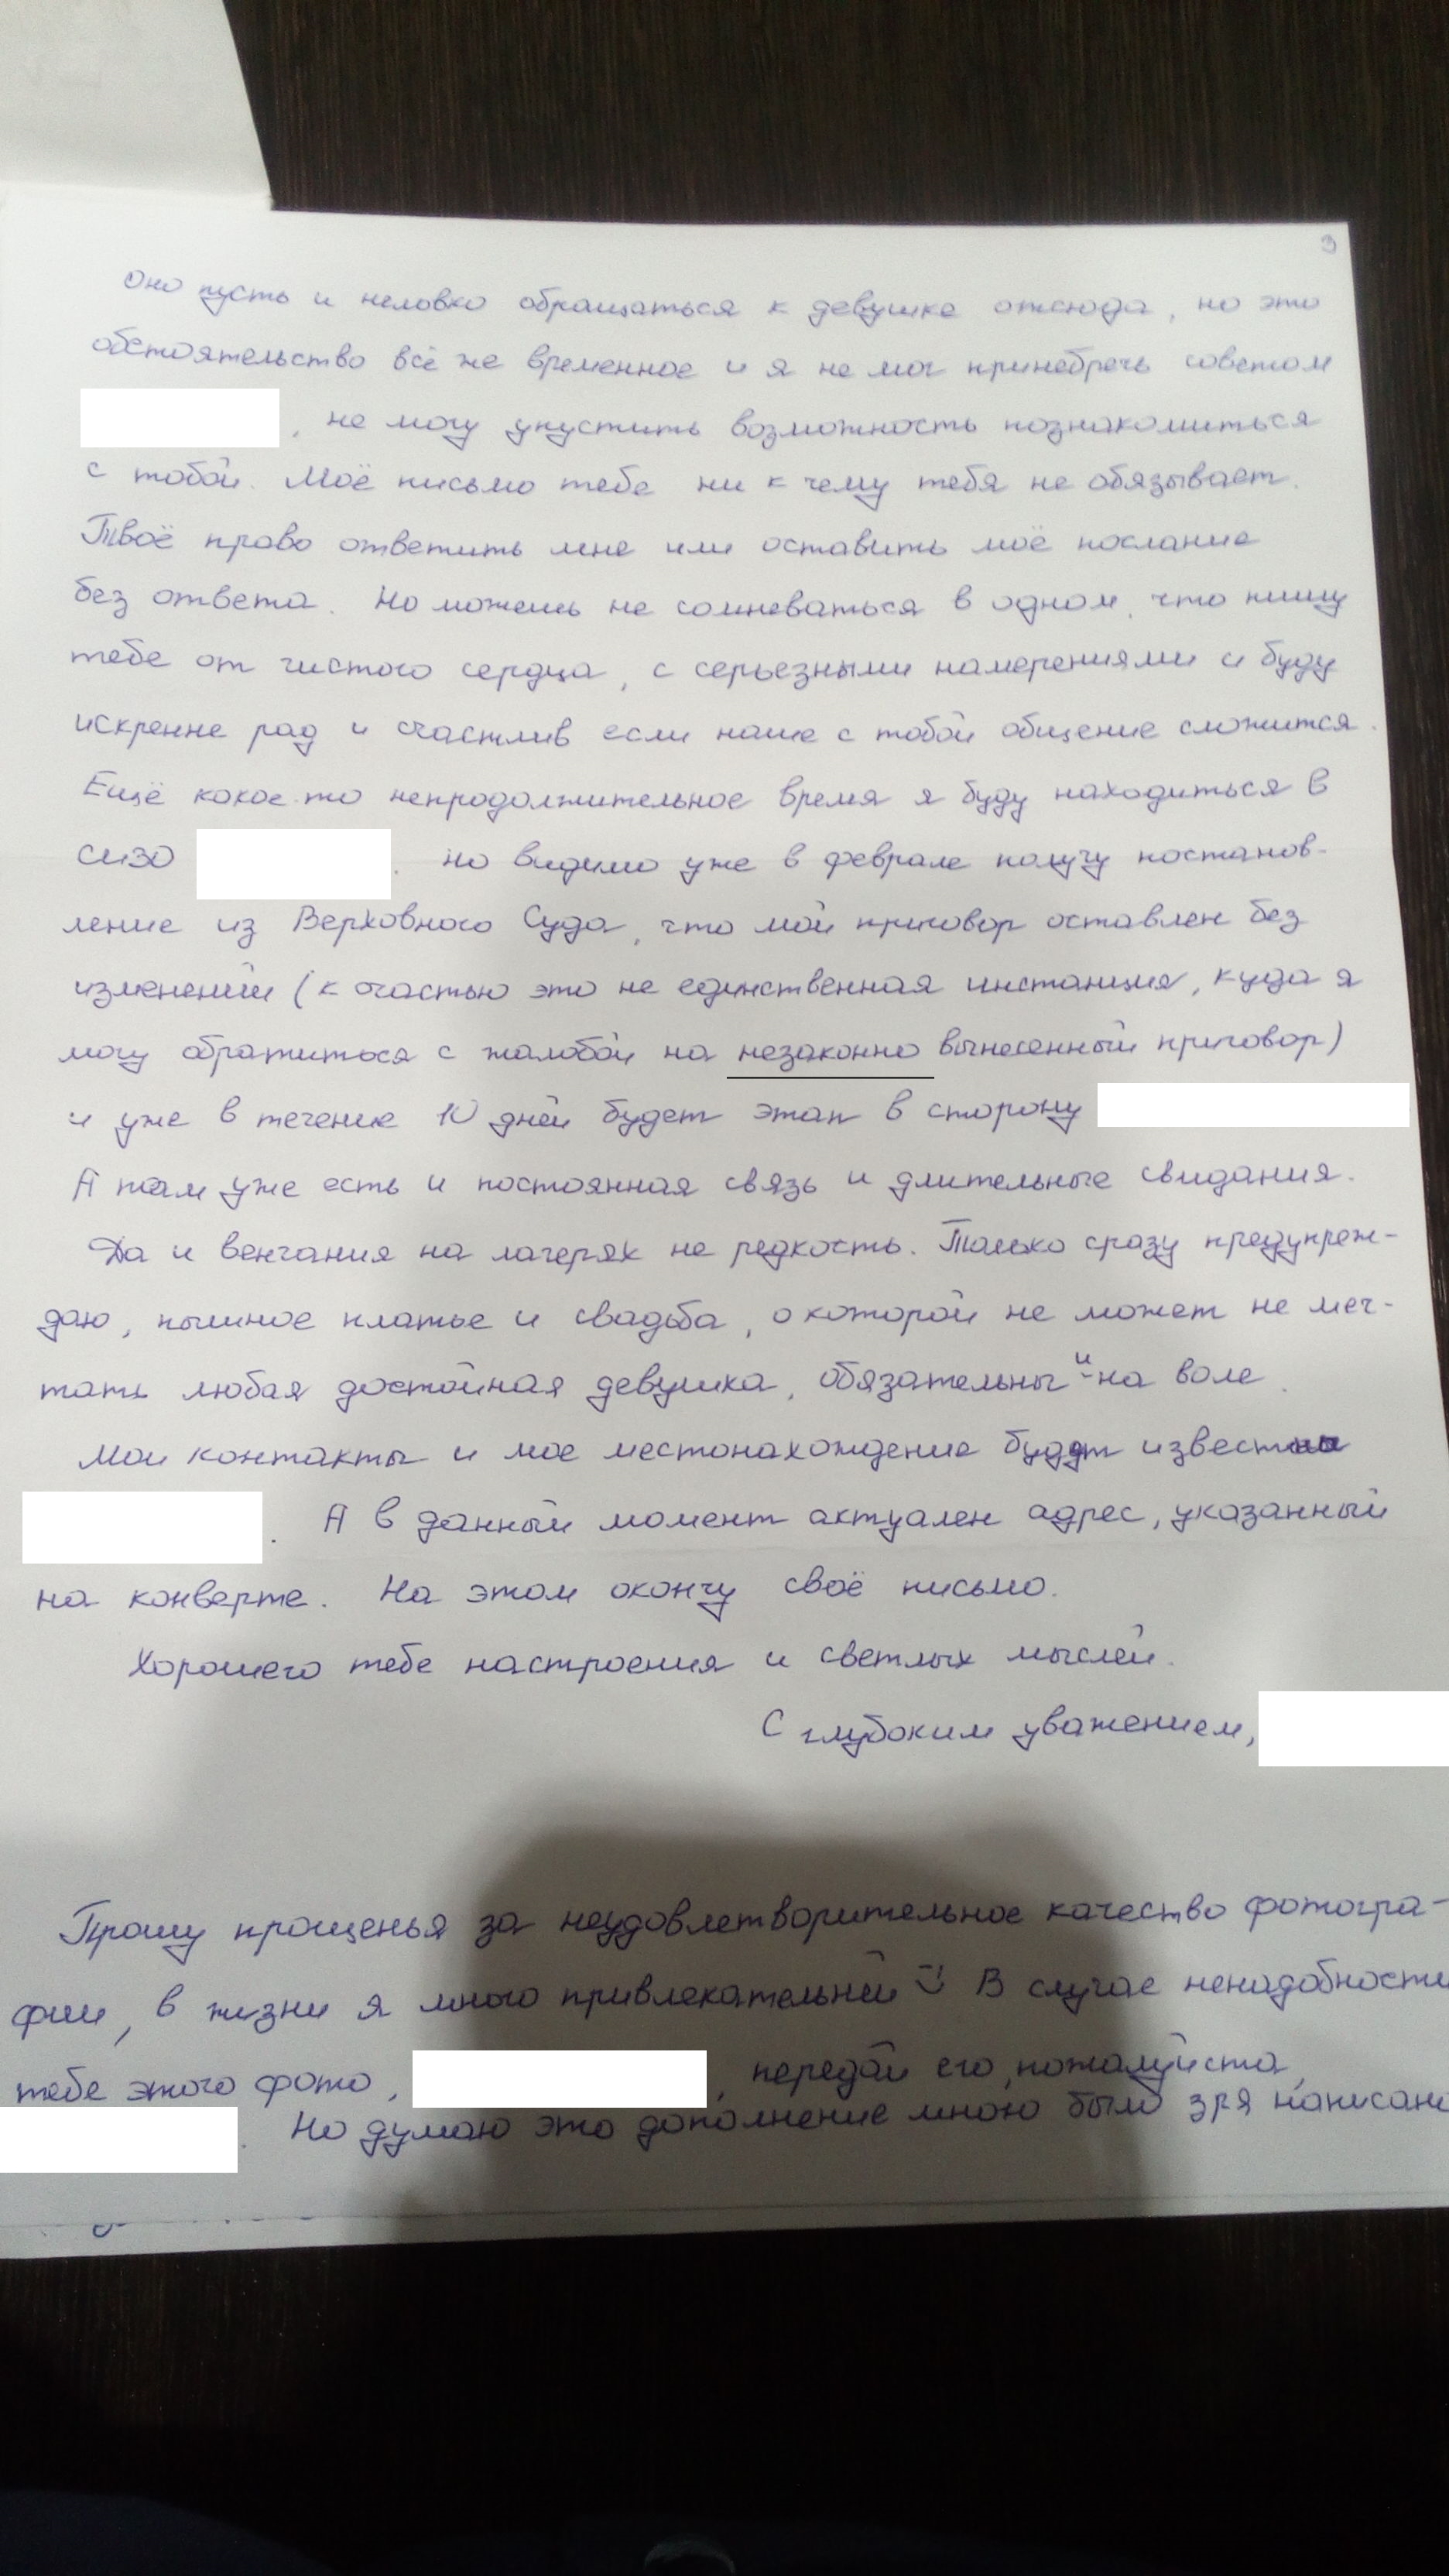 3
Оно пусть и неловко обращаться к девушке отсюда, но это
обстоятельство всё же временное и я не мог принебречь советом
, не могу упустить возможность познакомиться
с тобой. Моё письмо тебе ни к чему тебя не обязывает.
Твоё право ответить мне или оставить моё послание
без ответа. Но можешь не сомневаться в одном, что пишу
тебе от чистого сердца, с серьезными намерениями и буду
искренне рад и счастлив если наше с тобой общение сложится.
Ещё какое-то непродолжительное время я буду находиться в
СИЗО . Но видимо уже в феврале получу постанов-
ление из Верховного Суда, что мой приговор оставлен без
изменений (к счастью это не единственная инстанция, куда я
могу обратиться с жалобой на незаконно вынесенный приговор)
и уже в течение 10 дней будет этап в сторону
А там уже есть и постоянная связь и длительные свидания.
Да и венчания на лагерях не редкость. Только сразу предупреж-
даю, пышное платье и свадьба, о которой не может не меч-
тать любая достойная девушка, обязательны и - на воле.
Мои контакты и мое местонахождение будут известны
. А в данный момент актуален адрес, указанный
на конверте. На этом окончу своё письмо.
Хорошего тебе настроения и светлых мыслей.
С глубоким уважением,
Прошу прощенья за неудовлетворительное качество фотогра-
фии, в жизни я много привлекательней :) В случае ненадобности
тебе этого фото, , передай его, пожалуйста,
. Но думаю это дополнение мною было зря написано